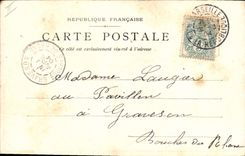 RÉPUBLIQUE FRANÇAISE
CARTE POSTALE
Ce côté est exclusivement réservé à l'adresse
MARSEILLE
Madame Laugier
au Pavillon
à Graveson
Bouches du Rhône